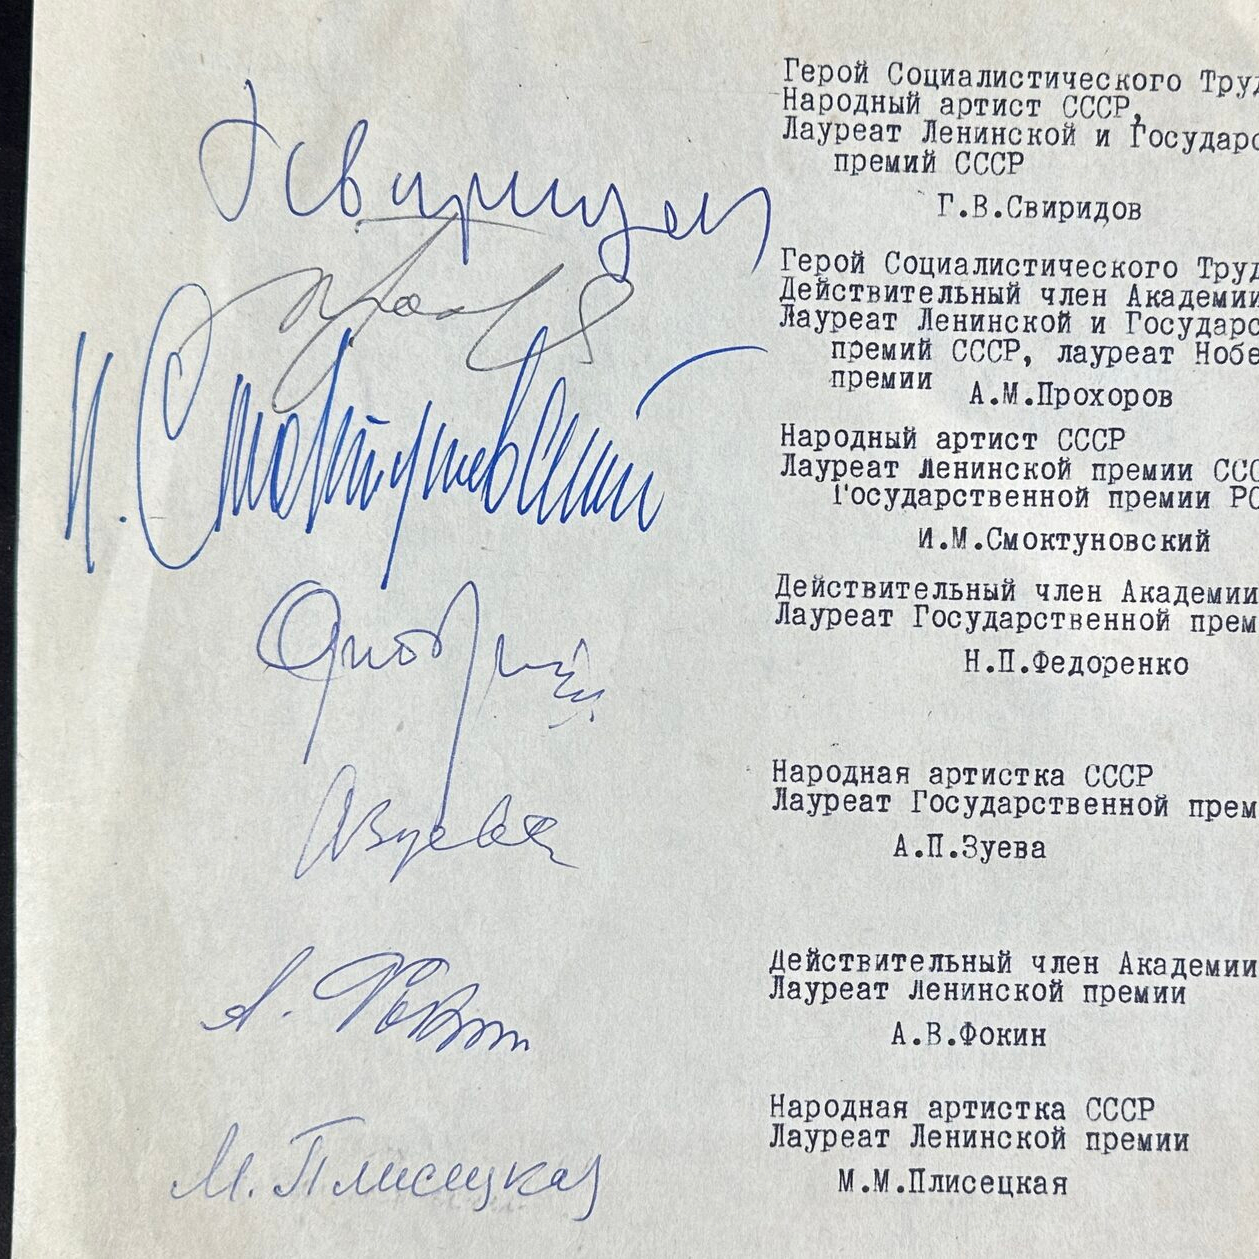 Герой Социалистического Труд
Народный артист СССР,
Лауреат Ленинской и Государс
премий СССР
Г Свиридов
Г.В.Свиридов
Герой Социалистического Труд
Действительный член Академии
Лауреат Ленинской и Государс
премий СССР, лауреат Нобе
премии
А.М.Прохоров
Народный артист СССР
Лауреат Ленинской премии ССС
Государственной премии РС
И. Смоктуновский
И.М.Смоктуновский
Действительный член Академии
Лауреат Государственной прем
Н.П.Федоренко
Народная артистка СССР
Лауреат Государственной прем
АЗуева
А.П.Зуева
Действительный член Академии
Лауреат Ленинской премии
А. Фокин
А.В.Фокин
Народная артистка СССР
Лауреат Ленинской премии
М. Плисецкая
М.М.Плисецкая